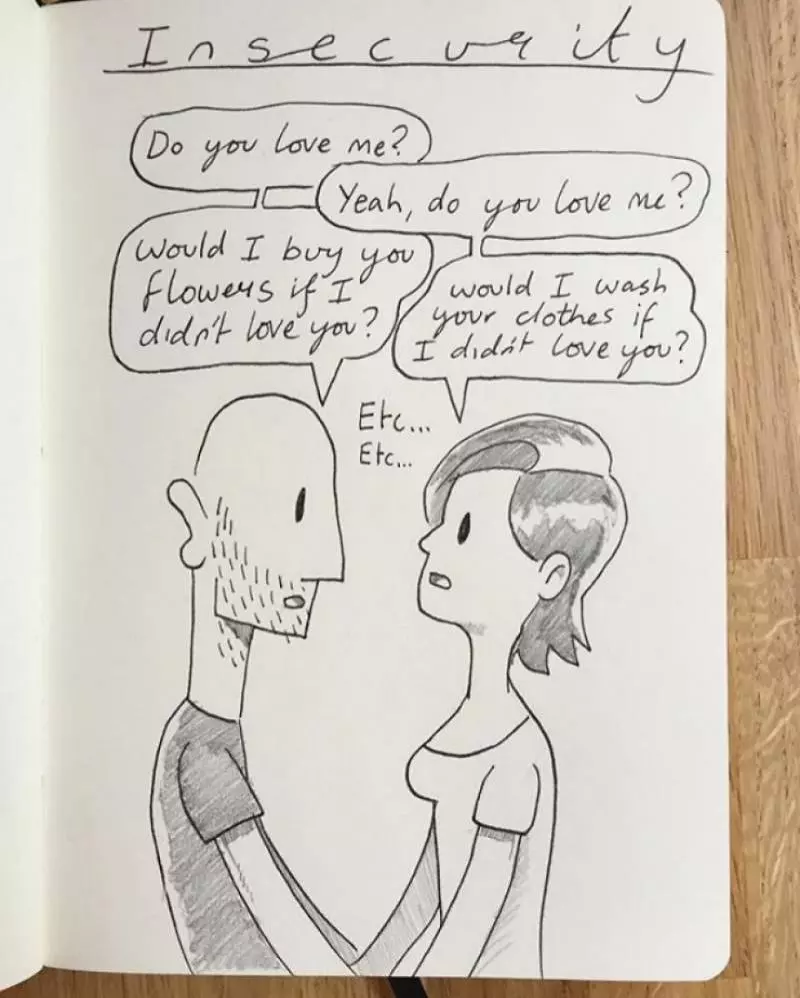 Insecurity
Do you love me?
Yeah, do you love me?
Would I buy you
flowers if I
didn't love you?
would I wash
your clothes if
I didn't love you?
Etc...
Etc...